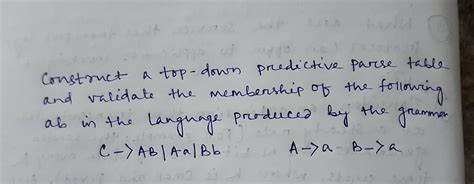 Construct a top-down predictive parse table
and validate the membership of the following
ab in the language produced by the grammar
C->AB|Aa|Bb A->a B->a